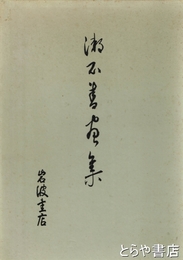 漱石書画集
岩波書店
とらや書店